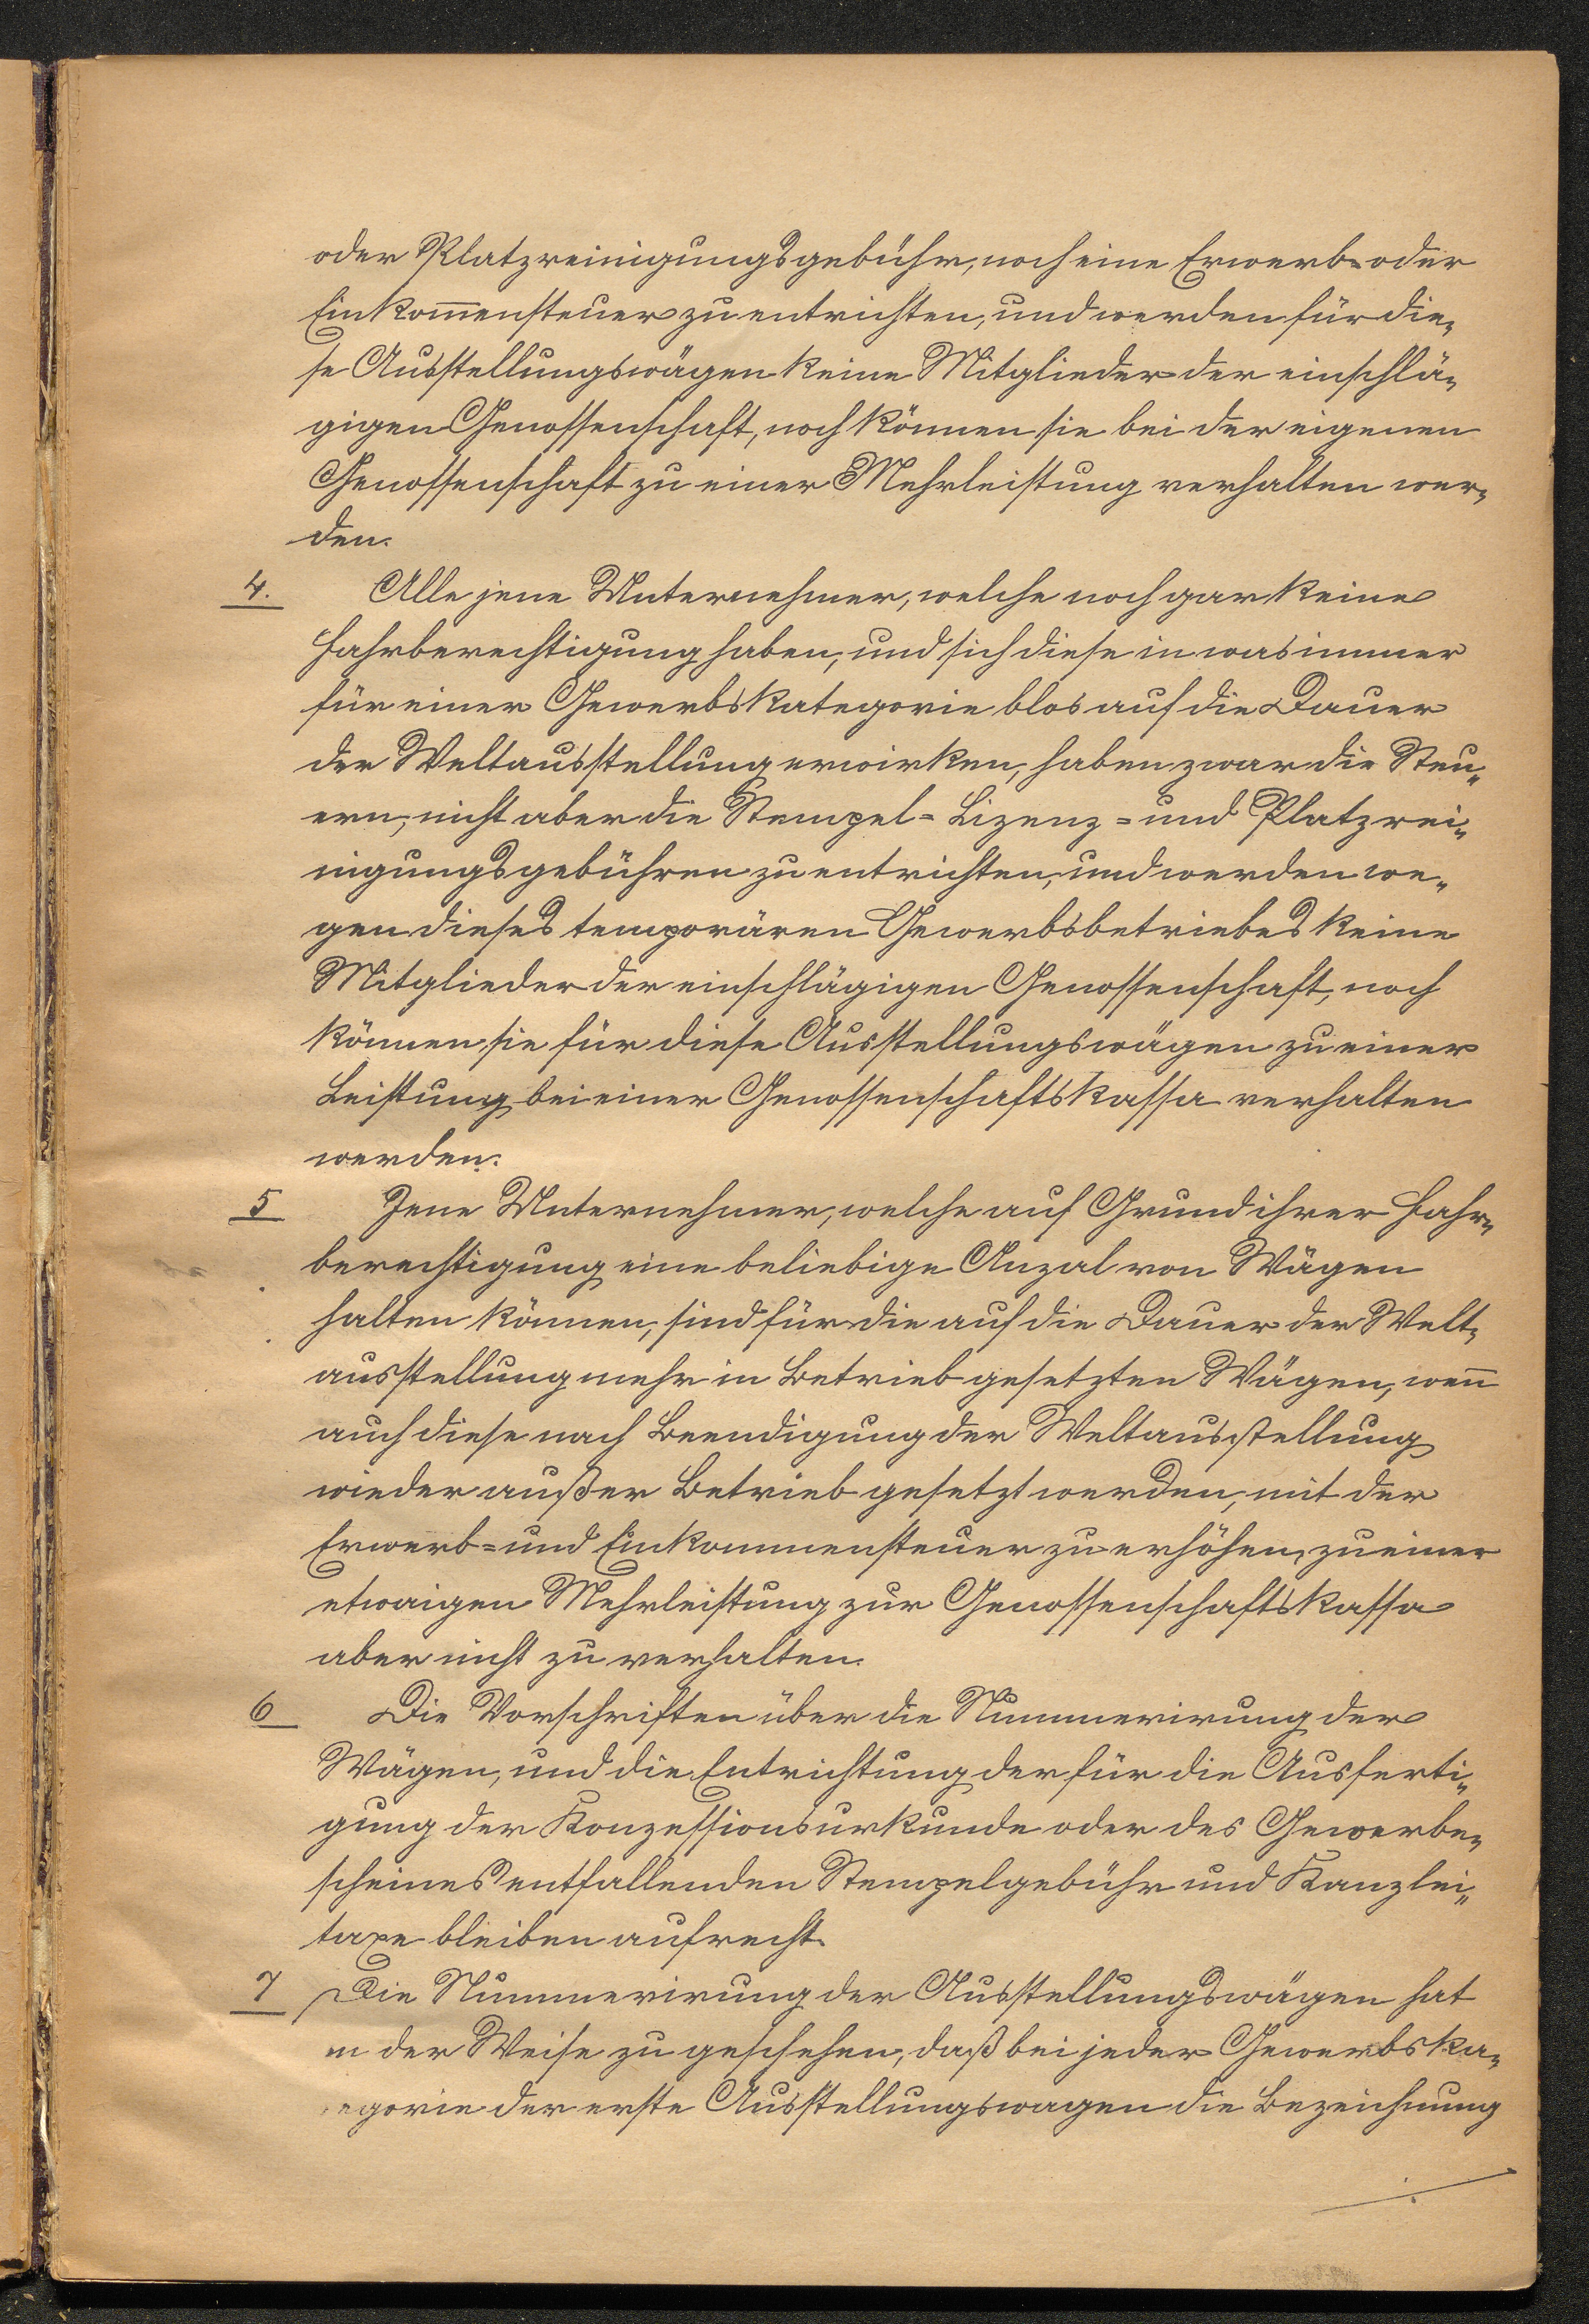 oder Platzreinigungsgebühr, noch eine Erwerb- oder
Einkom̅ensteuer zu entrichten, und werden für die-
se Ausstellungswägen keine Mitglieder der einschlä-
gigen Genossenschaft, noch können sie bei der eigenen
Genossenschaft zu einer Mehrleistung verhalten wer-
den.
4. Alle jene Unternehmer, welche noch gar keine
Fahrberechtigung haben, und sich diese in was immer
für einer Gewerbskategorie blos auf die Dauer
der Weltausstellung erwirken, haben zwar die Steu-
ern, nicht aber die Stempel- Lizenz- und Platzrei-
nigungsgebühren zu entrichten, und werden we-
gen dieses temporären Gewerbsbetriebes keine
Mitglieder der einschlägigen Genossenschaft, noch
können sie für diese Ausstellungswägen zu einer
Leistung bei einer Genossenschaftskassa verhalten
werden.
5 Jene Unternehmer, welche auf Grund ihrer Fahr-
berechtigung eine beliebige Anzal von Wägen
halten können, sind für die auf die Dauer der Welt-
ausstellung mehr in Betrieb gesetzten Wägen, wen̅
auch diese nach Beendigung der Weltausstellung
wieder außer Betrieb gesetzt werden, mit der
Erwerb- und Einkommensteuer zu erhöhen, zu einer
etwaigen Mehrleistung zur Genossenschaftskassa
aber nicht zu verhalten.
6 Die Vorschriften über die Nummerirung der
Wägen, und die Entrichtung der für die Ausferti-
gung der Konzessionsurkunde oder des Gewerbe-
scheines entfallenden Stempelgebühr und Kanzlei-
taxe bleiben aufrecht.
7 Die Nummerirung der Ausstellungswägen hat
in der Weise zu geschehen, daß bei jeder Gewerbska-
tegorie der erste Ausstellungswagen die Bezeichnung